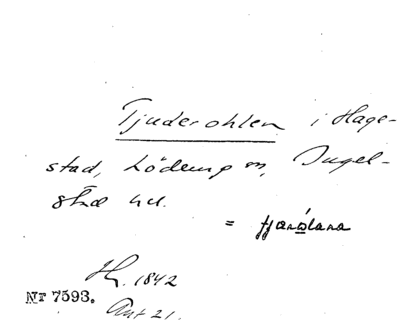 Tjuderohlen i Hage-
stad, Löderup sn, Ingel-
stad hd.
= tjᴂrǫlana
H. 1842
Nr 7593.
Ant 21.